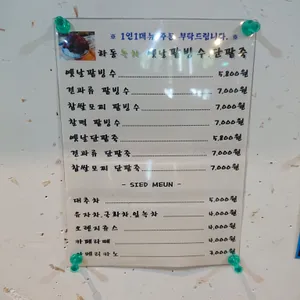 ※ 1인1메뉴 주문 부탁드립니다. ※
하동녹차 옛날팥빙수, 단팥죽
옛날팥빙수 5,800원
견과류 팥빙수 7,000원
찹쌀모찌 팥빙수 7,000원
찰떡 팥빙수 7,000원
옛날단팥죽 5,800원
견과류 단팥죽 7,000원
찹쌀모찌 단팥죽 7,000원
- SIED MEUN -
대추차 5,000원
유자차,국화차,입녹차 4,000원
오렌지쥬스 4,000원
카페라떼 4,000원
아메리카노 3,000원